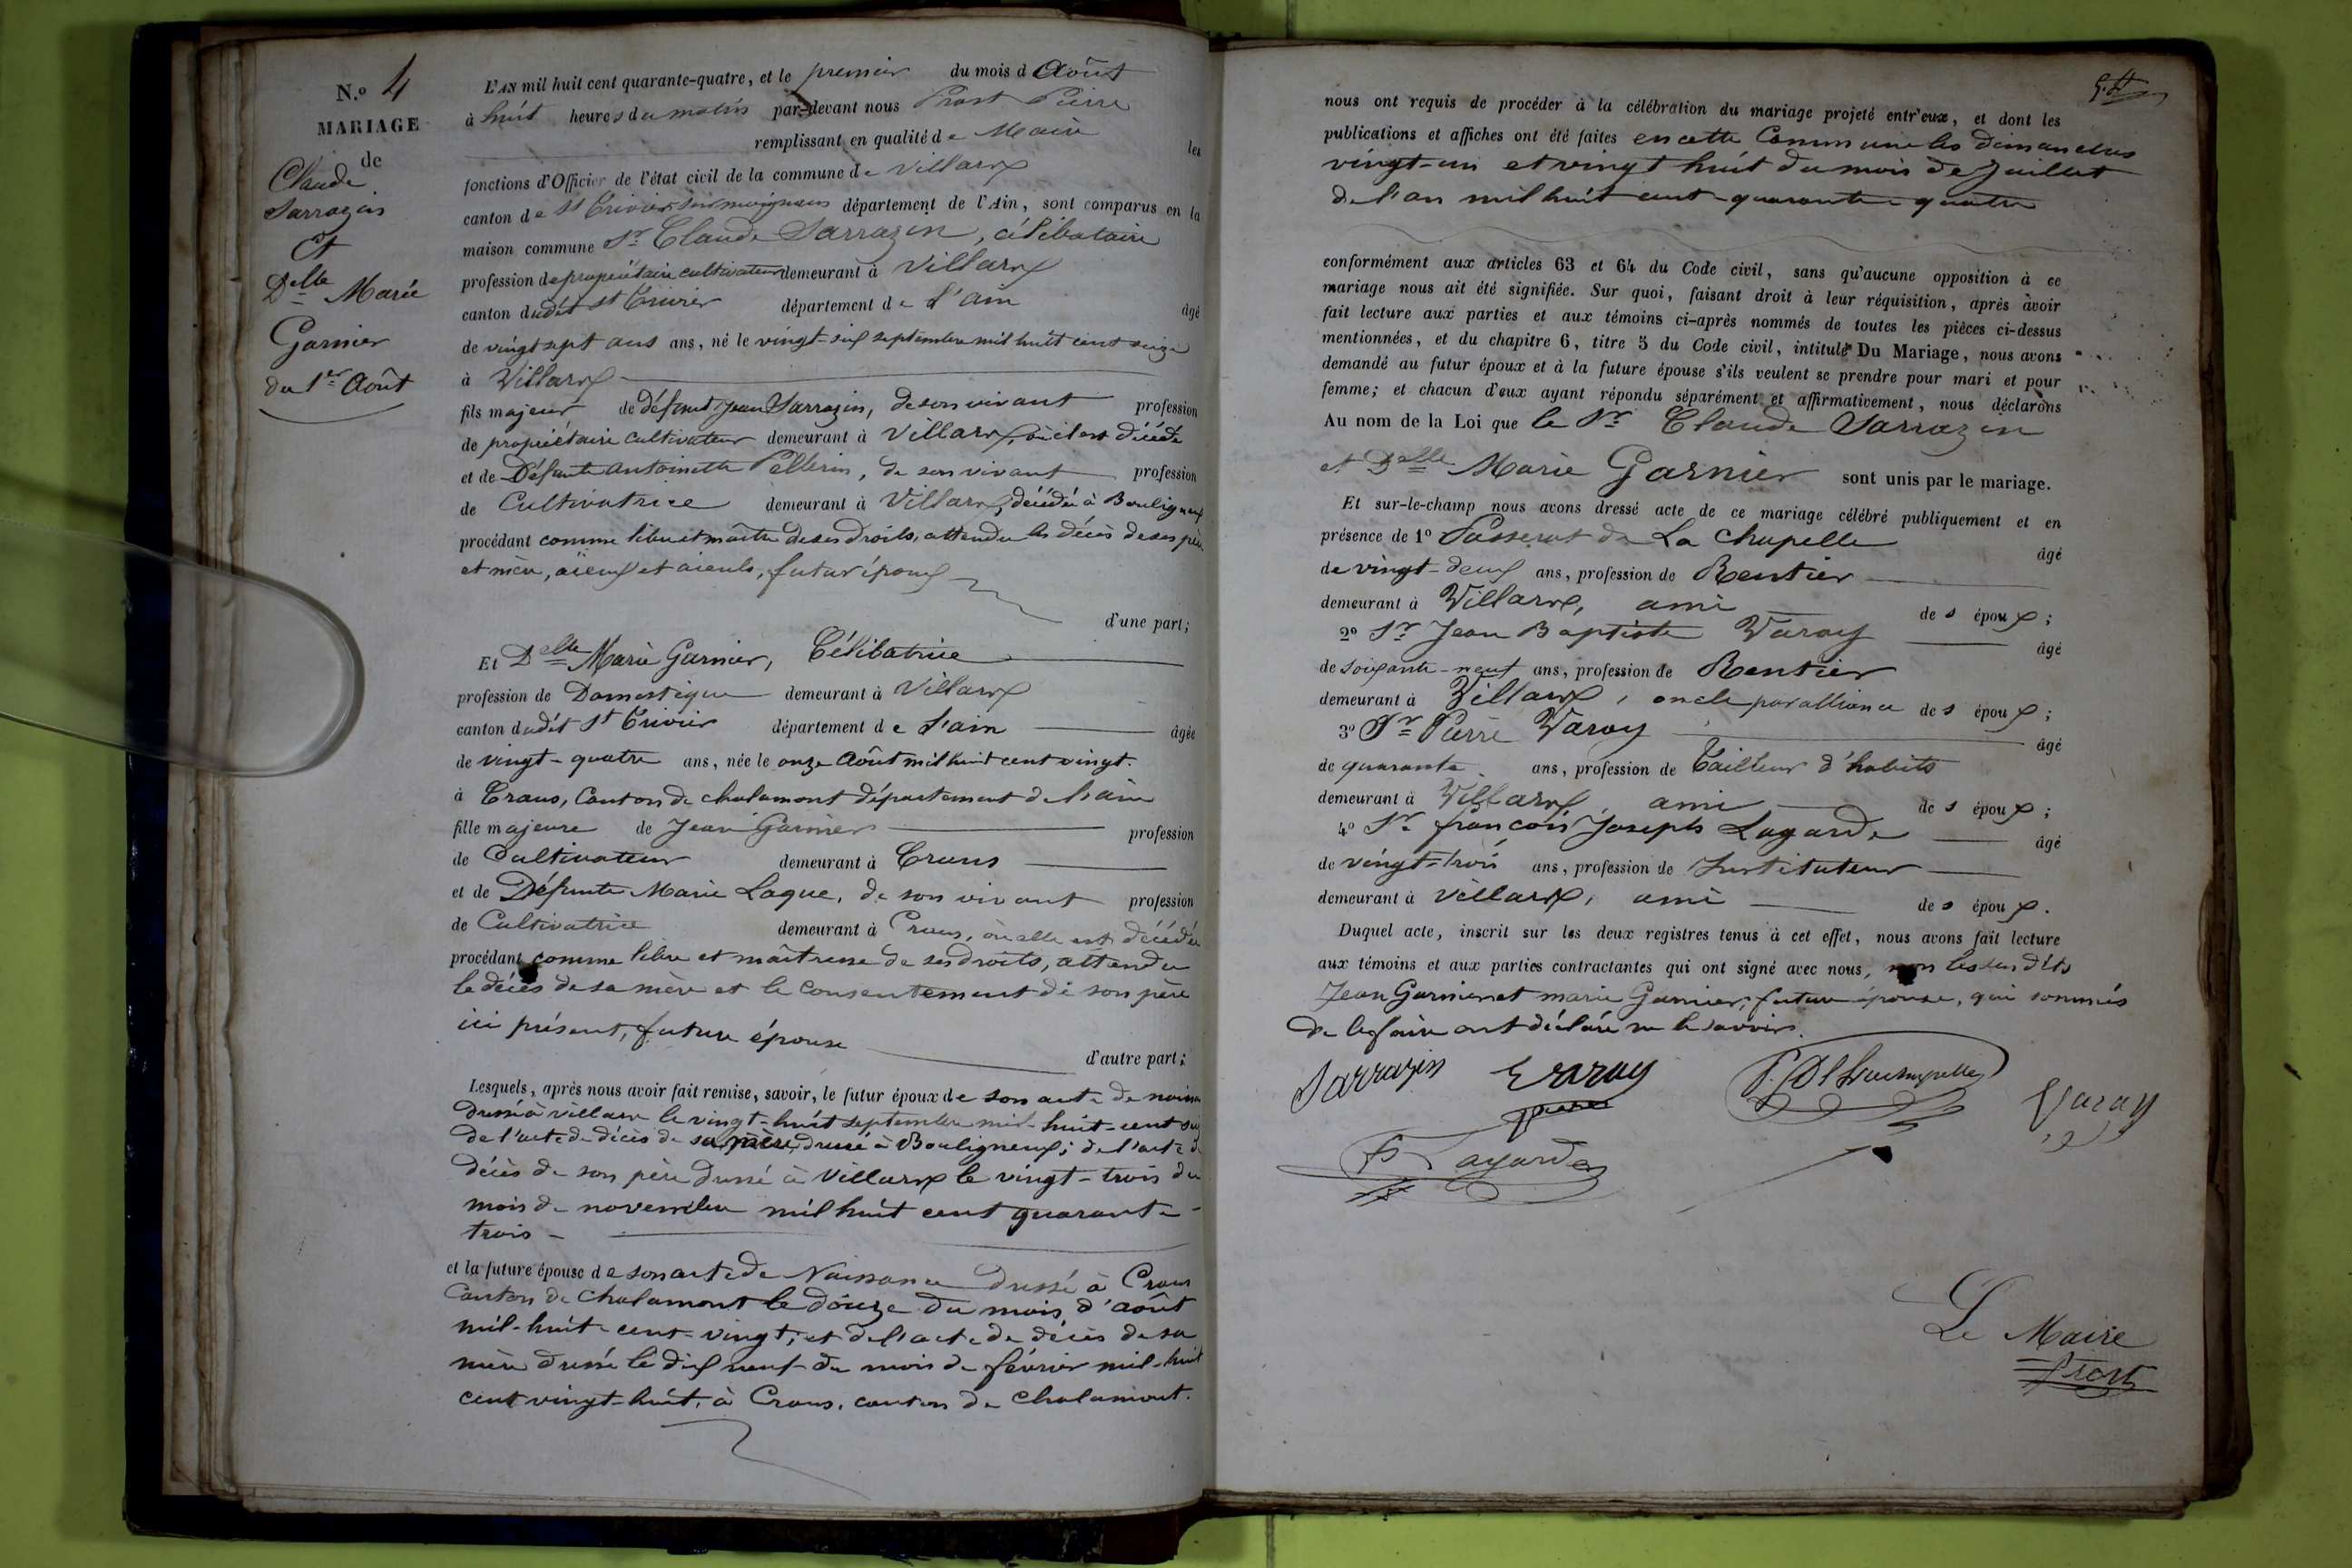 N.º 4
MARIAGE
de
Claude
Sarrazin
Et
Delle Marie
Garnier
du 1er Août
L'AN mil huit cent quarante-quatre, et le premier du mois d Août
à huit heures du matin par-devant nous Prost Pierre
remplissant en qualité de Maire les
fonctions d'Officier de l'état civil de la commune de Villars
canton de St Trivier sur moignans département de l'Ain, sont comparus en la
maison commune Sr Claude Sarrazin, célibataire
profession de propriétaire cultivateur demeurant à Villars
canton dudit St Trivier département de L'ain âgé
de vingt sept ans ans, né le vingt-six septembre mil huit cent seize
à Villars
fils majeur de défunt Jean Sarrazin, de son vivant profession
de propriétaire cultivateur demeurant à Villars, où il est décédé
et de Défunte antoinette Pellerin, de son vivant profession
de Cultivatrice demeurant à Villars, décédée à Bouligneux
procédant comme libre et maître de ses droits, attendu les décès de ses père
et mère, aïeux et aïeuls, futur époux
d'une part;
Et Delle Marie Garnier, Célibatrice
profession de Domestique demeurant à Villars
canton dudit St Trivier département de L'ain âgée
de vingt-quatre ans, née le onze Août mil huit cent vingt.
à Crans, Canton de chalamont département de l'ain
fille majeure de Jean Garnier profession
de Cultivateur demeurant à Crans
et de Défunte Marie Laque, de son vivant profession
de Cultivatrice demeurant à Crans, où elle est décédée
procédant comme libre et maîtresse de ses droits, attendu
le décès de sa mère et le consentement de son père
ici présent, future épouse
d'autre part;
Lesquels, après nous avoir fait remise, savoir, le futur époux de son acte de naissan
dressé à villars le vingt-huit septembre mil-huit-cent-sei
de l'acte de décès de sa mère, dressé à Bouligneux; de l'acte de
décès de son père dressé à Villars le vingt-trois du
mois de novembre mil huit cent quarante-
trois-
et la future épouse de son acte de Naissance dressé à Crans
Canton de chalamont le douze du mois d'août
mil-huit-cent-vingt, et de l'acte de décès de sa
mère dressé le dix neuf du mois de février mil-huit
cent vingt-huit, à Crans, canton de chalamont.
nous ont requis de procéder à la célébration du mariage projeté entr'eux, et dont les
publications et affiches ont été faites en cette Commune les dimanches
vingt-un et vingt huit du mois de Juillet
de l'an mil huit cent-quarante-quatre
conformément aux articles 63 et 64 du Code civil, sans qu'aucune opposition à ce
mariage nous ait été signifiée. Sur quoi, faisant droit à leur réquisition, après avoir
fait lecture aux parties et aux témoins ci-après nommés de toutes les pièces ci-dessus
mentionnées, et du chapitre 6, titre 5 du Code civil, intitulé Du Mariage, nous avons
demandé au futur époux et à la future épouse s'ils veulent se prendre pour mari et pour
femme; et chacun d'eux ayant répondu séparément et affirmativement, nous déclarons
Au nom de la Loi que le Sr Claude Sarrazin
et Delle Marie Garnier sont unis par le mariage.
Et sur-le-champ nous avons dressé acte de ce mariage célébré publiquement et en
présence de 1º Passerat de La Chapelle âgé
de vingt-deux ans, profession de Rentier
demeurant à Villars, ami des époux;
2º Sr Jean Baptiste Varay âgé
de soixante-neuf ans, profession de Rentier
demeurant à Villars, oncle par alliance des époux;
3º Sr Pierre Varay âgé
de quarante ans, profession de Tailleur d'habits
demeurant à Villars, ami des époux;
4º Sr françois Joseph Lagarde âgé
de vingt-trois ans, profession de Instituteur
demeurant à Villars, ami des époux.
Duquel acte, inscrit sur les deux registres tenus à cet effet, nous avons fait lecture
aux témoins et aux parties contractantes qui ont signé avec nous, non les susdits
Jean Garnier et marie Garnier, future épouse, qui sommés
de le faire ont déclaré ne le savoir.
Sarrazin Varay P. D Lachapelle Varay
F Lagarde
Le Maire
Prost